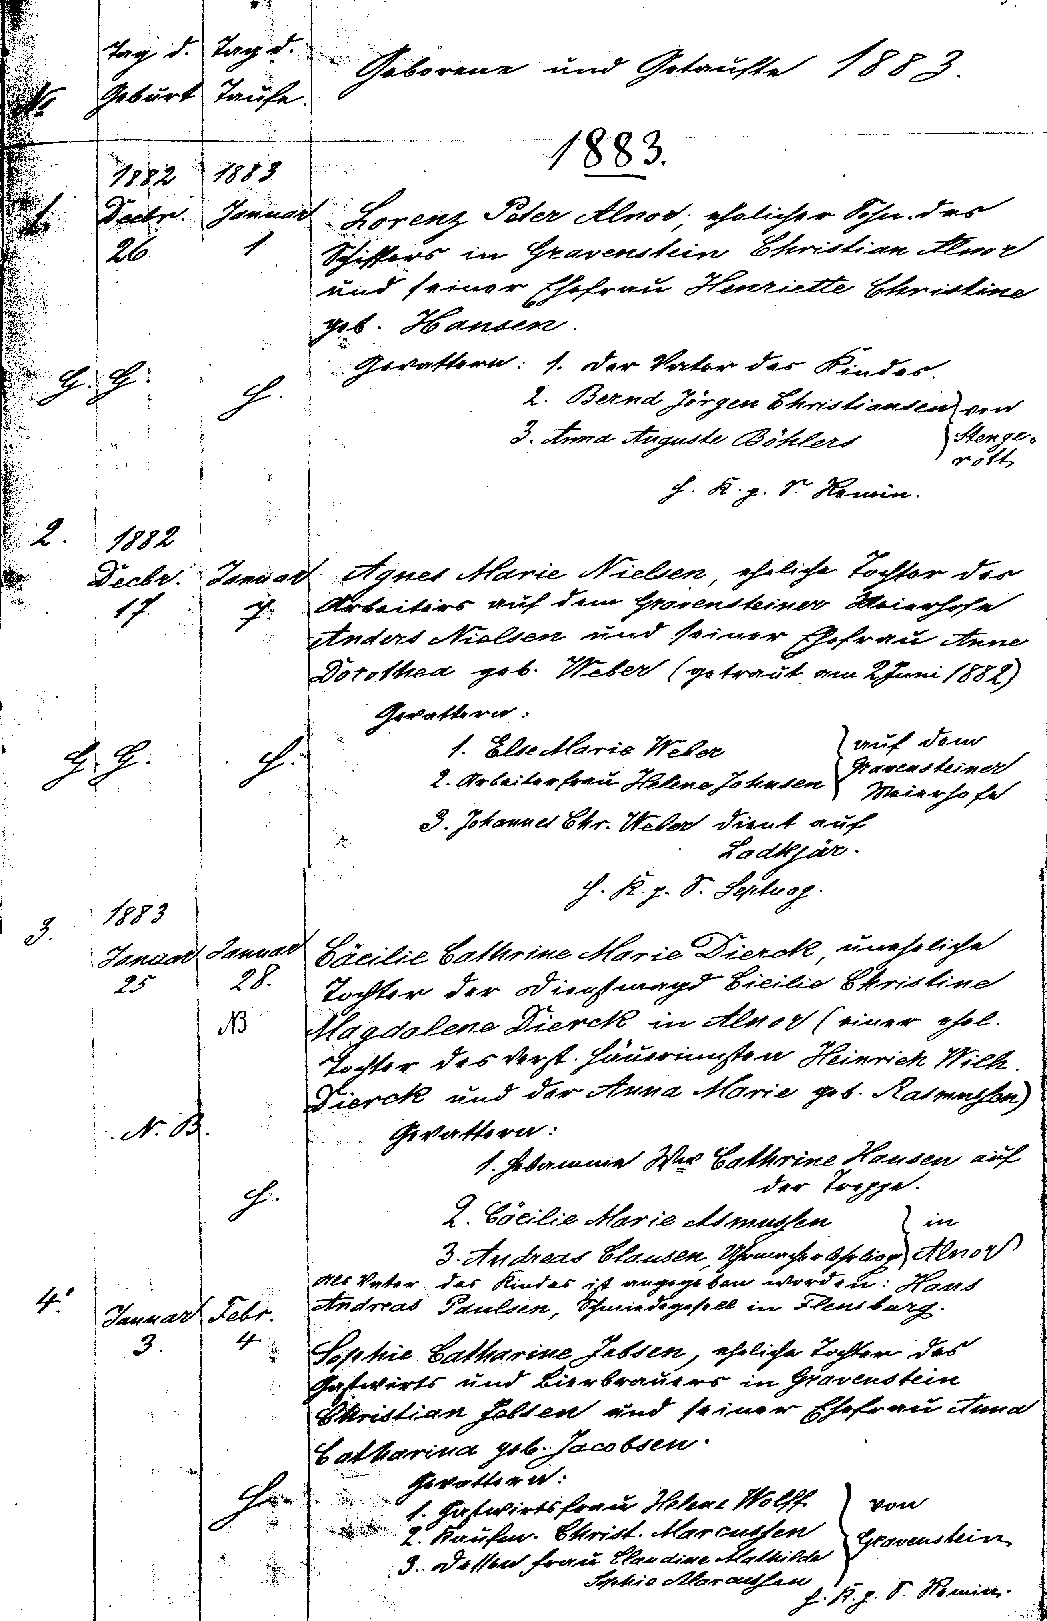 No Tag d. Geburt Tag d. Taufe. Geborene und Getaufte 1883.
1883.
1. 1882 Decbr. 26 1883 Januar 1
Lorenz Peter Alnor, ehelicher Sohn des
Schiffers in Gravenstein Christian Alnor
und seiner Ehefrau Henriette Christine
geb. Hansen.
Gevattern: 1. der Vater des Kindes.
2. Bernd Jörgen Christiansen } von
3. Anna Auguste Böhlers } Stenge-
rott
2. 1882 Decbr. 17 Januar 7.
Agnes Marie Nielsen, eheliche Tochter des
Arbeiters auf dem Gravensteiner Meierhofe
Anders Nielsen und seiner Ehefrau Anne
Dorothea geb. Weber (getraut am 2 Juni 1882)
Gevattern:
1. Else Marie Weber } auf dem
2. Arbeiterfrau Helene Johnsen } Gravensteiner
Meierhofe
3. Johannes Chr. Weber dient auf
Ladkjär.
H. K. p. S. Septuag.
3. 1883 Januar 25 Januar 28.
NB
Cäcilie Cathrine Marie Dierck, uneheliche
Tochter der Dienstmagd Cicilie Christine
Magdalene Dierck in Alnor (einer ehel.
Tochter des verst. Häuerinsten Heinrich Wilh.
Dierck und der Anna Marie geb. Rasmussen)
N. B.
Gevattern:
1. Hebamme Wwe Cathrine Hansen auf
der Treppe.
2. Cäcilie Marie Asmussen } in
3. Andreas Clausen, Uhrmacher } Alnor
Als Vater des Kindes ist angegeben worden: Hans
Andreas Paulsen, Schmiedegesell in Flensburg.
4. Januar 3. Febr. 4
Sophie Catharine Jebsen, eheliche Tochter des
Gastwirts und Bierbrauers in Gravenstein
Christian Jebsen und seiner Ehefrau Anna
Catharina geb. Jacobsen.
Gevattern:
1. Gastwirtsfrau Helene Wolff } von
2. Kaufm. Christ. Marcussen } Gravenstein
3. Dessen Frau Claudine Mathilde
Sophie Marcussen